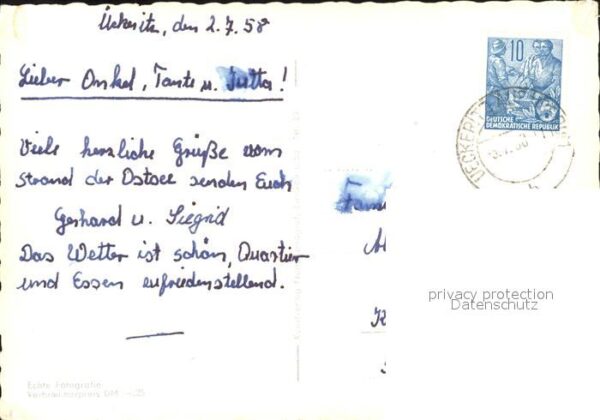 Ückeritz, den 2.7.58
Lieber Onkel, Tante u. Jutta!
Viele herzliche Grüße vom
Strand der Ostsee senden Euch
Gerhard u. Siegrid
Das Wetter ist schön, Quartier
und Essen zufriedenstellend.
10
DEUTSCHE
DEMOKRATISCHE REPUBLIK
UECKERITZ
Fam
K
privacy protection
Datenschutz
Echte Fotografie
Verbraucherpreis DM -.25